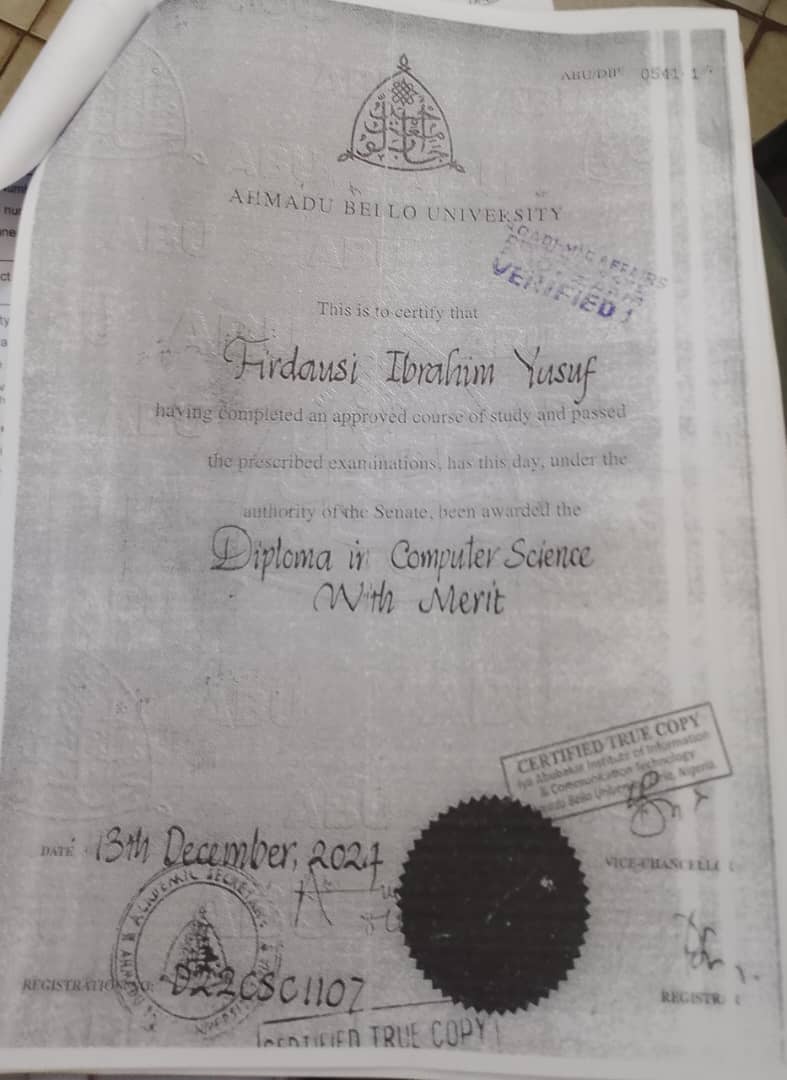 ABU/DIP 0541 1
AHMADU BELLO UNIVERSITY
ACADEMIC AFFAIRS
VERIFIED
This is to certify that
Firdausi Ibrahim Yusuf
having completed an approved course of study and passed
the prescribed examinations, has this day, under the
authority of the Senate, been awarded the
Diploma in Computer Science
With Merit
CERTIFIED TRUE COPY
Iya Abubakar Institute of Information
& Communication Technology
Bello University, Nigeria.
DATE: 13th December, 2024
VICE-CHANCELL
ACADEMIC SECRETARY
REGISTRATION NO: D22CSC1107
REGISTR
CERTIFIED TRUE COPY